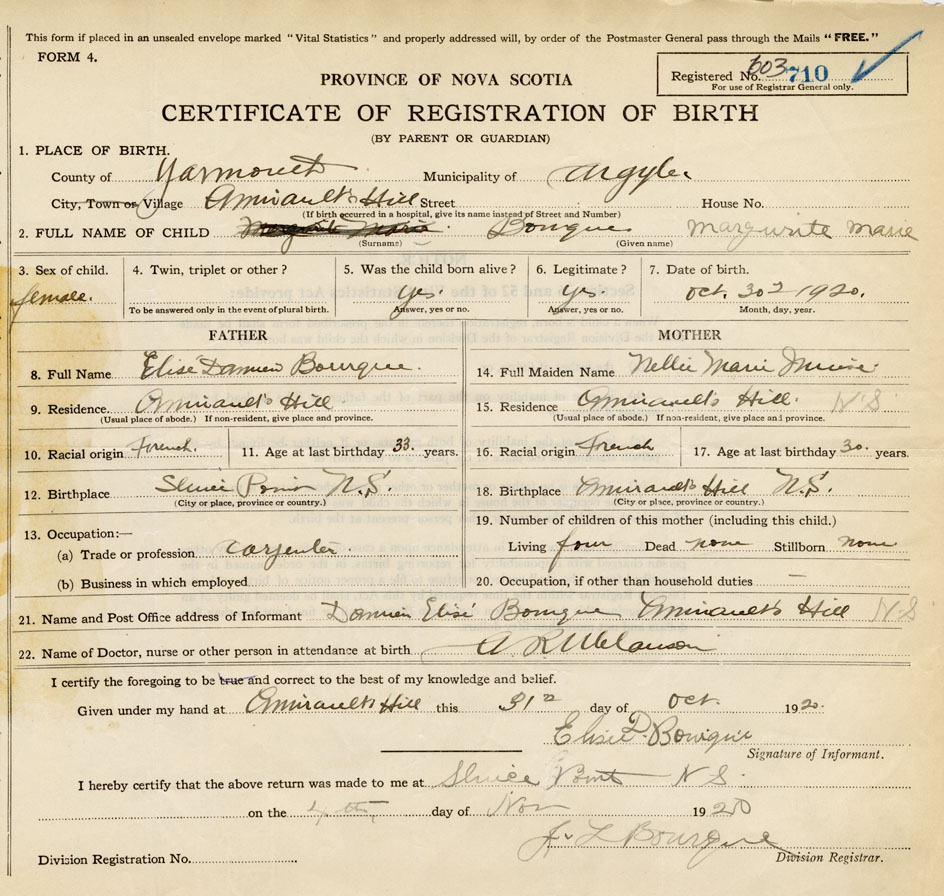 This form if placed in an unsealed envelope marked "Vital Statistics" and properly addressed will, by order of the Postmaster General pass through the Mails "FREE."
FORM 4.
Registered No. 603 710
For use of Registrar General only.
PROVINCE OF NOVA SCOTIA
CERTIFICATE OF REGISTRATION OF BIRTH
(BY PARENT OR GUARDIAN)
1. PLACE OF BIRTH.
County of Yarmouth Municipality of Argyle
City, Town or Village Amirault's Hill Street House No.
(If birth occurred in a hospital, give its name instead of Street and Number)
2. FULL NAME OF CHILD Marguerite Marie Bourque Marguerite Marie
(Surname) (Given name)
3. Sex of child. 4. Twin, triplet or other? 5. Was the child born alive? 6. Legitimate? 7. Date of birth.
female. yes. yes. Oct. 30 1920.
To be answered only in the event of plural birth. Answer, yes or no. Answer, yes or no. Month, day, year.
FATHER
8. Full Name Elisé Damien Bourque.
9. Residence. Amirault's Hill
(Usual place of abode.) If non-resident, give place and province.
10. Racial origin French. 11. Age at last birthday 33. years.
12. Birthplace Sluice Point N.S.
(City or place, province or country.)
13. Occupation:—
(a) Trade or profession carpenter.
(b) Business in which employed
MOTHER
14. Full Maiden Name Nellie Marie Muise.
15. Residence Amirault's Hill. N.S
(Usual place of abode.) If non-resident, give place and province.
16. Racial origin French 17. Age at last birthday 30. years.
18. Birthplace Amirault's Hill N.S.
(City or place, province or country.)
19. Number of children of this mother (including this child.)
Living four Dead none Stillborn none
20. Occupation, if other than household duties —
21. Name and Post Office address of Informant Damien Elisé Bourque Amirault's Hill N.S
22. Name of Doctor, nurse or other person in attendance at birth A R Melanson
I certify the foregoing to be true and correct to the best of my knowledge and belief.
Given under my hand at Amirault's Hill this 31 day of Oct. 1920.
Elisé D. Bourque
Signature of Informant.
I hereby certify that the above return was made to me at Sluice Point N S.
on the 4th day of Nov 1920
J. L Bourque
Division Registration No. Division Registrar.